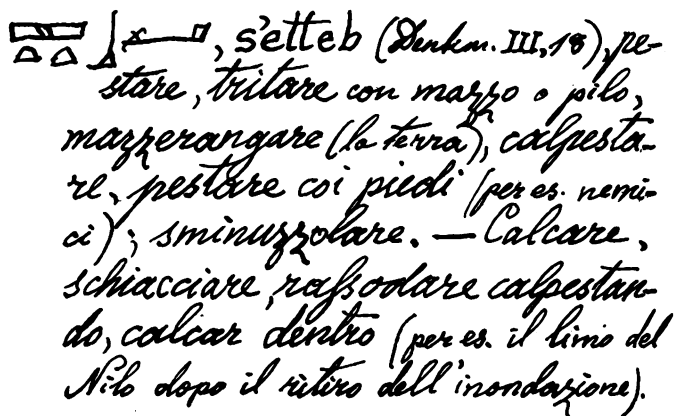 , s'etteb (Denkm. III, 18), pe-
stare, tritare con mazzo o pilo,
mazzerangare (la terra), calpesta-
re, pestare coi piedi (per es. nemi-
ci); sminuzzolare. — Calcare,
schiacciare, raſsodare calpestan-
do, calcar dentro (per es. il limo del
Nilo dopo il ritiro dell'inondazione).